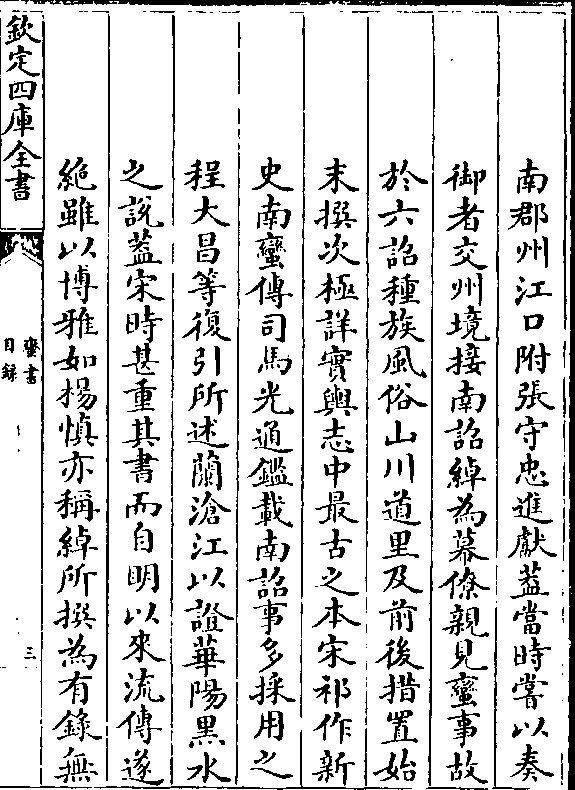 南郡州江口附張守忠進獻葢當時嘗以奏
御者交州境接南詔綽為幕僚親見蠻事故
於六詔種族風俗山川道里及前後措置始
末撰次極詳實輿志中最古之本宋祁作新
史南蠻傳司馬光通鑑載南詔事多採用之
程大昌等復引所述蘭滄江以證華陽黑水
之說葢宋時甚重其書而自明以來流傳遂
絶雖以博雅如楊慎亦稱綽所撰為有錄無
欽定四庫全書
蠻書
目錄
三